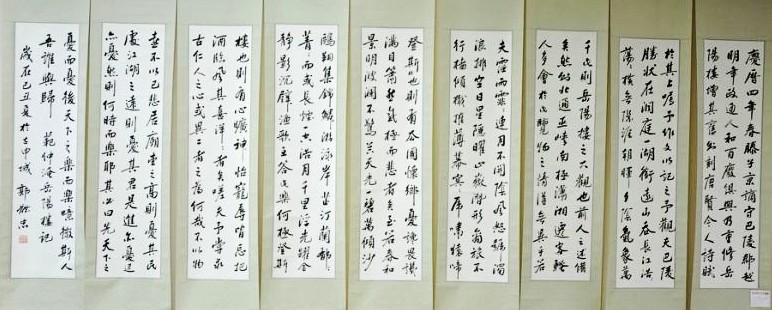 慶曆四年春滕子京謫守巴陵郡越
明年政通人和百廢俱興乃重修岳
陽樓增其舊制刻唐賢今人詩賦
於其上屬予作文以記之予觀夫巴陵
勝狀在洞庭一湖銜遠山吞長江浩浩
湯湯橫無際涯朝暉夕陰氣象萬
千此則岳陽樓之大觀也前人之述備
矣然則北通巫峽南極瀟湘遷客騷
人多會於此覽物之情得無異乎若
夫霪雨霏霏連月不開陰風怒號濁
浪排空日星隱曜山嶽潛形商旅不
行檣傾楫摧薄暮冥冥虎嘯猿啼
登斯樓也則有去國懷鄉憂讒畏譏
滿目蕭然感極而悲者矣至若春和
景明波瀾不驚上下天光一碧萬頃沙
鷗翔集錦鱗游泳岸芷汀蘭郁郁
青青而或長煙一空皓月千里浮光躍金
靜影沉璧漁歌互答此樂何極登斯
樓也則有心曠神怡寵辱皆忘把
酒臨風其喜洋洋者矣嗟夫予嘗求
古仁人之心或異二者之為何哉不以物
喜不以己悲居廟堂之高則憂其民
處江湖之遠則憂其君是進亦憂退
亦憂然則何時而樂耶其必曰先天下之
憂而憂後天下之樂而樂噫微斯人
吾誰與歸 范仲淹岳陽樓記
歲在己丑夏於古申城 郭